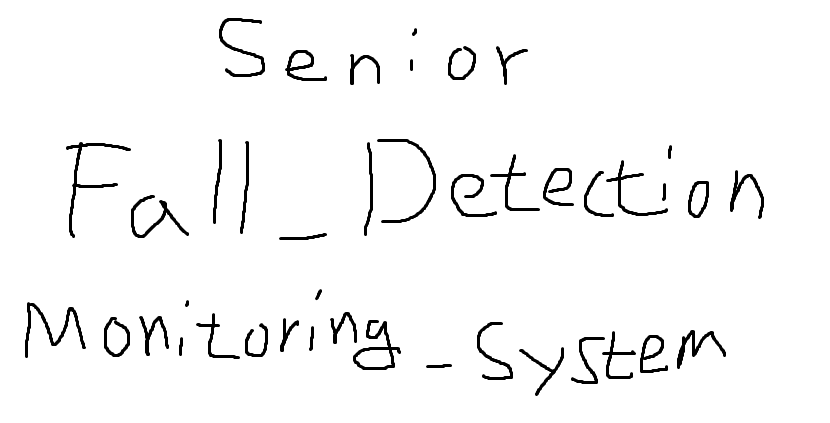 Senior
Fall_Detection
Monitoring_System